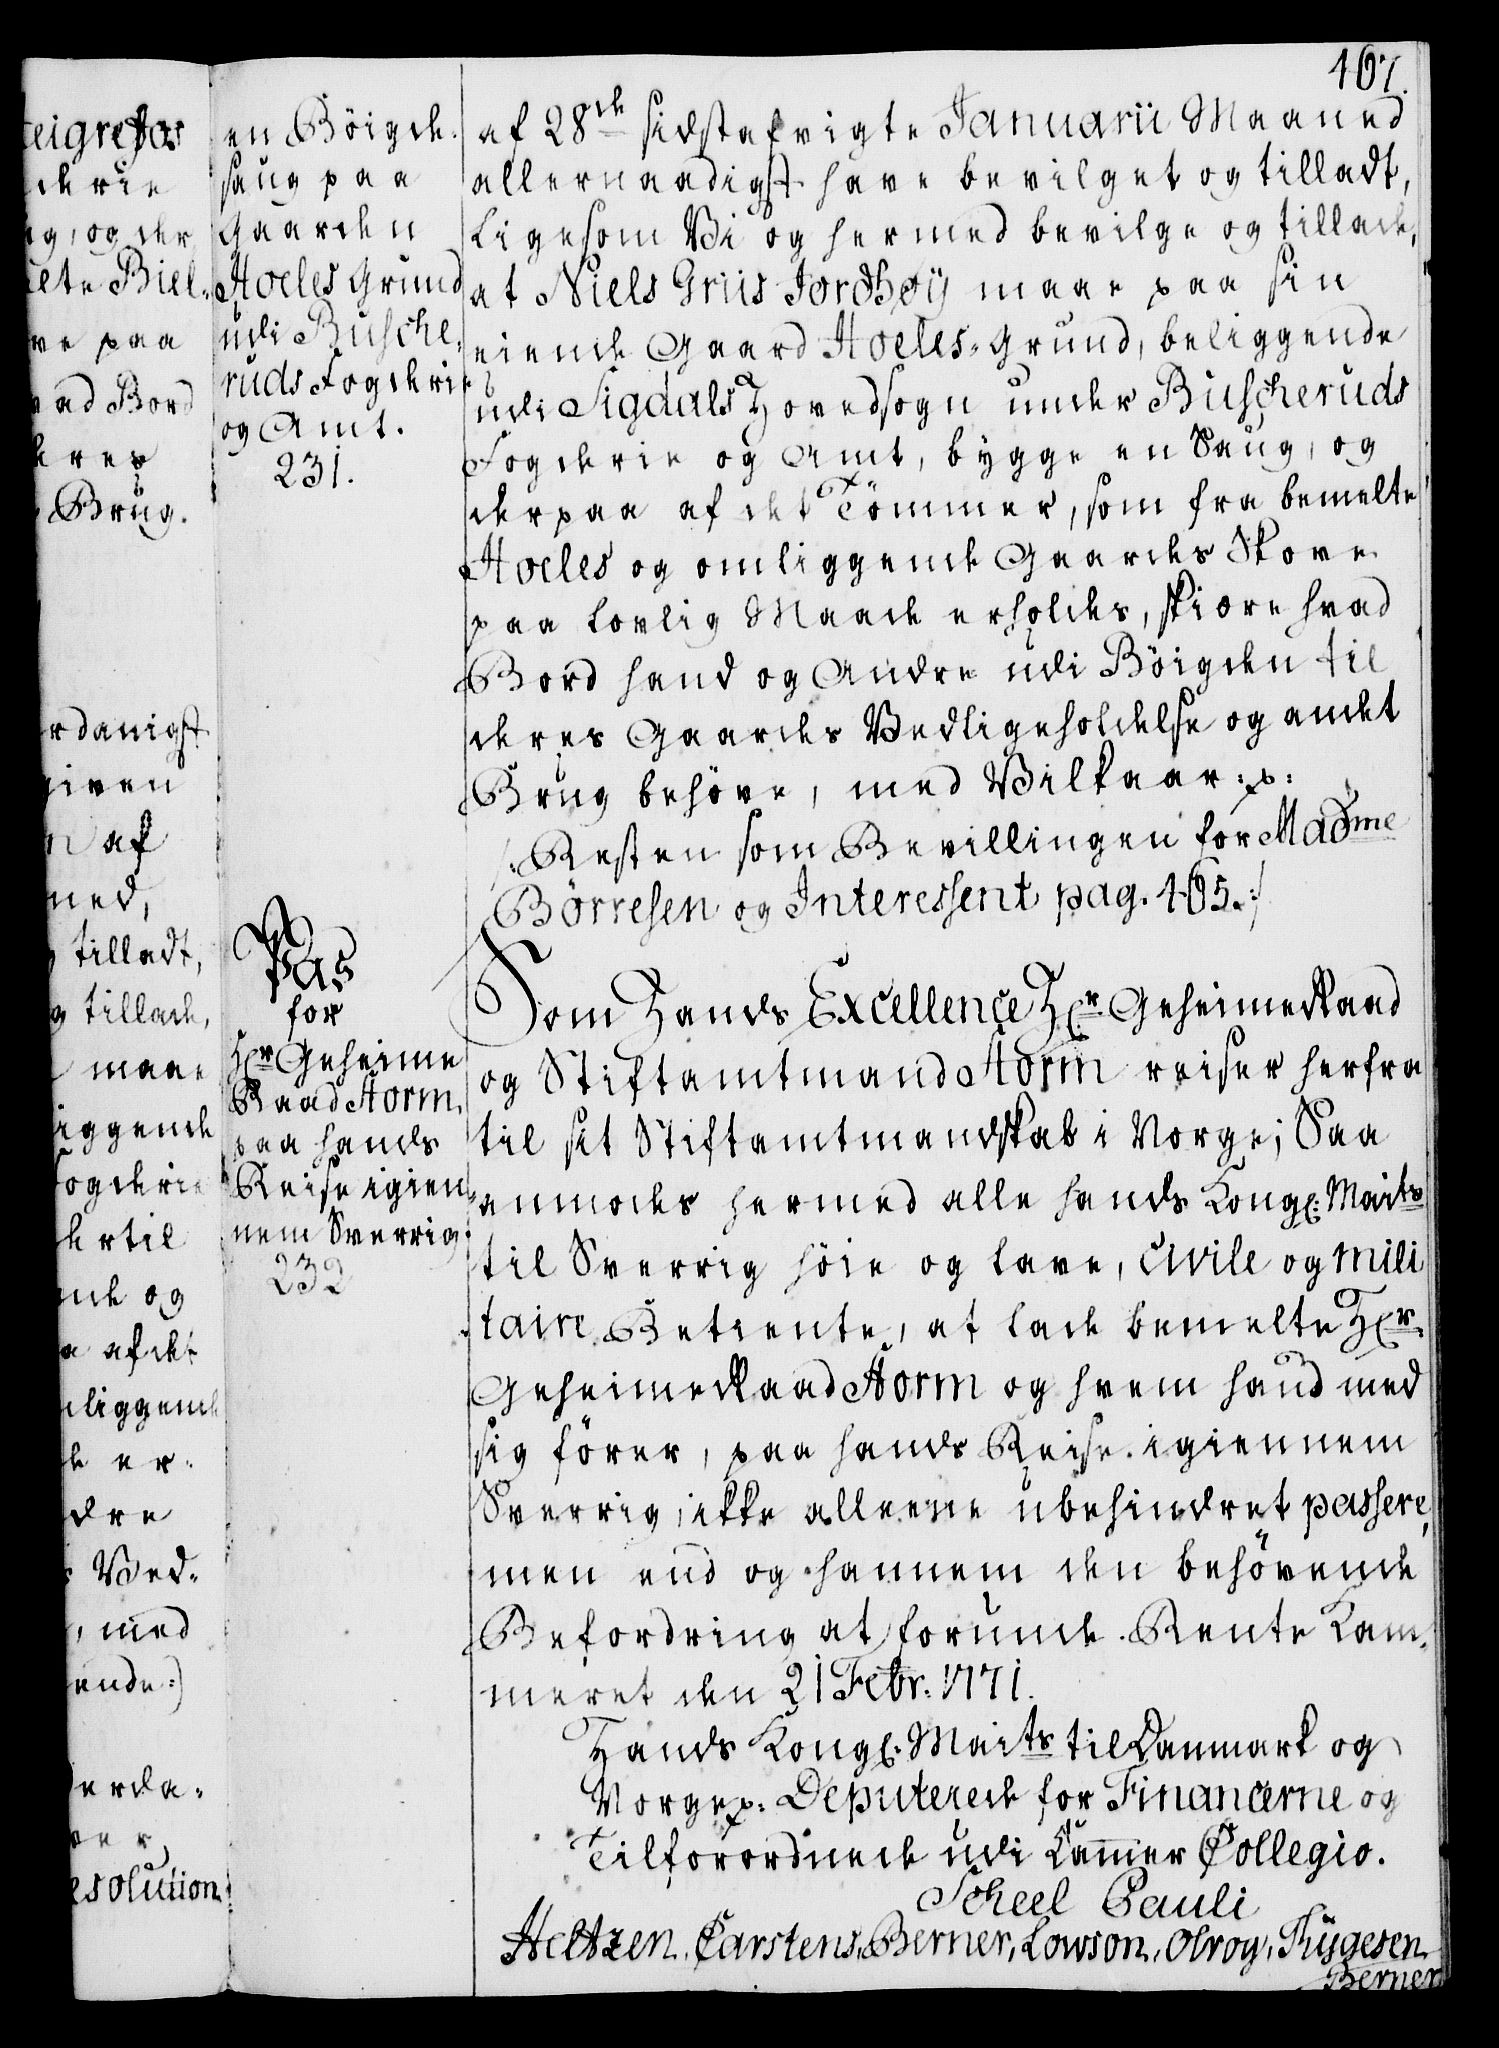 167.
en Böigde-
saug paa
Gaarden
Hoeles Grund
udi Busche,
ruds Fogderie
og Amt.
231.
af 28de sidstafvigte Januarii Maaned
allernaadigst have bevilget og tilladt,
ligesom Vi og hermed bevilge og tillade,
at Niels Griis Jordhøy maae paa sin
eiende Gaard Hoeles-Grund, beliggende
udi Sigdals Hovedsogn under Buscheruds
Fogderie og Amt, bygge en Saug, og
derpaa af det Tömmer, som fra bemelte
Hoeles og omliggende Gaardes Skove
paa lovlig Maade erholdes, skiære hvad
Bord hand og Andre udi Böigden til
deres Gaardes Vedligeholdelse og andet
Brug behöve, med Vilkaar: p:
/: Resten som Bevillingen for Madme
Börresen og Interessent pag. 165. :/
Pas
for
Hr Geheime
Raad Storm,
paa hands
Reise igien-
nem Sverrig.
232
Som Hands Excellence Hr Geheimeraad
og Stiftamtmand Storm reiser herfra
til sit Stiftamtmandskab i Norge; Saa
anmodes hermed alle hands Kongl: Maits
til Sverrig höie og lave, Civile og mili
taire Betiente, at lade bemelte Hr
Geheimeraad Storm og hvem hand med
sig förer, paa hands Reise igiennem
Sverrig, ikke alleene ubehindret passere,
men end og hannem den behövende
Befordring at forunde. Rente Kam-
meret den 21 Febr. 1771.
Hands Kongl: Maits til Danmark og
Norge p: Deputerede for Financerne og
Tilforordnede udi Cammer Collegio.
Scheel Pauli
Heltzen, Carstens, Berner, Lowson, Olroy, Thygesen
Berner
teigrefas
derie
ug, og der
elte Biel-
ve paa
vad Bord
deres
Brug.
rdanigst
given
n af
med,
tilladt,
og tillade,
maae
iggende
Fogderie
dertil
nde og
a af det
nliggende
de er-
dre
s Ved-
, med
ende:)
erda-
ver
esolution